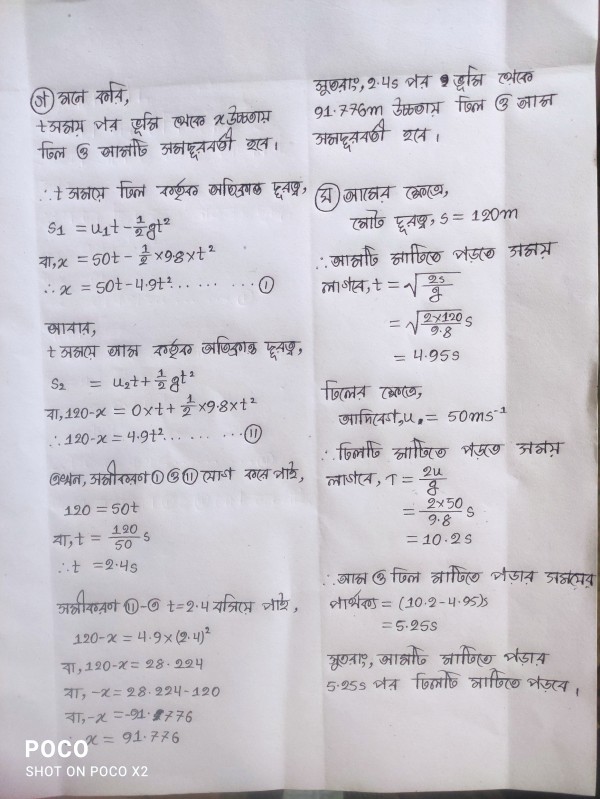 গ মনে করি,
t সময় পর ভূমি থেকে x উচ্চতায়
ঢিল ও আমটি সমদূরবর্তী হবে।
∴ t সময়ে ঢিল কর্তৃক অতিক্রান্ত দূরত্ব,
s₁ = u₁t - 1/2 gt²
বা, x = 50t - 1/2 × 9.8 × t²
∴ x = 50t - 4.9t² .......... (i)
আবার,
t সময়ে আম কর্তৃক অতিক্রান্ত দূরত্ব,
s₂ = u₂t + 1/2 gt²
বা, 120-x = 0×t + 1/2 × 9.8 × t²
∴ 120-x = 4.9t² .......... (ii)
এখন, সমীকরণ (i) ও (ii) যোগ করে পাই,
120 = 50t
বা, t = 120/50 s
∴ t = 2.4s
সমীকরণ (ii)-এ t=2.4 বসিয়ে পাই,
120-x = 4.9×(2.4)²
বা, 120-x = 28.224
বা, -x = 28.224-120
বা, -x = -91.776
x = 91.776
সুতরাং, 2.4s পর ভূমি থেকে
91.776m উচ্চতায় ঢিল ও আম
সমদূরবর্তী হবে।
ঘ আমের ক্ষেত্রে,
মোট দূরত্ব, s = 120m
∴ আমটি মাটিতে পড়তে সময়
লাগবে, t = √(2s/g)
= √(2×120/9.8) s
= 4.95s
ঢিলের ক্ষেত্রে,
আদিবেগ, u = 50ms⁻¹
∴ ঢিলটি মাটিতে পড়তে সময়
লাগবে, T = 2u/g
= 2×50/9.8 s
= 10.2s
∴ আম ও ঢিল মাটিতে পড়ার সময়ের
পার্থক্য = (10.2-4.95)s
= 5.25s
সুতরাং, আমটি মাটিতে পড়ার
5.25s পর ঢিলটি মাটিতে পড়বে।
POCO
SHOT ON POCO X2